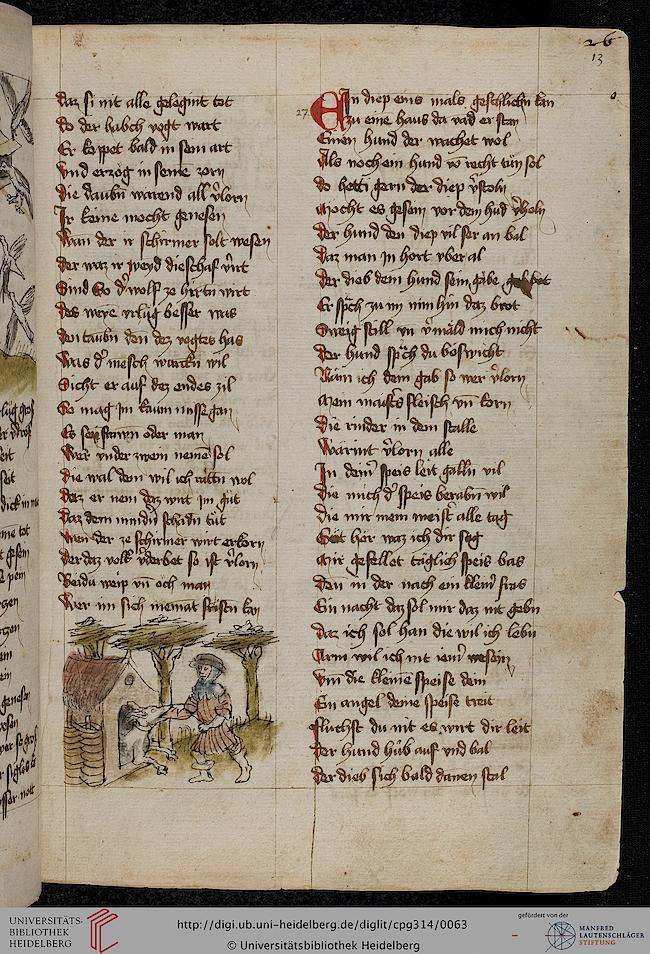 26
13
daz si nit alle gelegint tot
do der habch vogt wart
Er koppet bald in sein art
vnd erzög in seine zorn
die daubn warend all vlorn
Ir keine mocht genesen
Wan der ir schirmer solt wesen
der waz ir die schaf
Sind so d wolf ze hirtn wirt
des weyē vrlüg besser was
den taubn den dez vogtes has
Was d mesch wurckn wil
Sicht er auf dez endes zil
So mag Im kaum misse gan
Es sey frawn oder man
Wer vnder zwein nemē sol
die wal dem wil ich wol
daz er nem daz wirt im güt
daz dem mindn schadn tüt
Wer der ze schirmer wirt erkorn
der daz volk vderbet so ist vlorn
Beidü weip vn och man
Wer im sich niemat fristn kan
27
EIn diep eins mals geschlichn kan
zu eine haus da vand er stan
Einen hund der wachet wol
Als noch ein hund vō recht tün sol
do hetti gern der diep vstoln
Mocht es gesein vor dem hūd vholn
der hund den diep vil ser an bal
daz man In hort vber al
der dieb dem hund sein gabe
Er spch zu im nim hin daz brot
Sweig still vn vmäld mich nicht
der hund spch du böswicht
Näm ich dein gab so wer vlorn
Mein maistes fleisch vn korn
die rinder in dem stalle
Wärint vlorn alle
In dein speis leit galln vil
die mich d speis beraubn wil
die mir mein meist alle tag
Geit hör waz ich dir sag
Mir gefellet täglich speis bas
den in der nach ein klein fras
Ein nacht daz sol mir daz nit gebn
daz ich sol han die wil ich lebn
Arm wil ich nit iem wesen
vm die kleine speise dein
Ein angel deine speise treit
fluchst du nit es wirt dir leit
der hund hüb auf vnd bal
der dieb sich bald danen stal
UNIVERSITÄTS-
BIBLIOTHEK
HEIDELBERG
http://digi.ub.uni-heidelberg.de/diglit/cpg314/0063
© Universitätsbibliothek Heidelberg
gefördert von der
MANFRED
LAUTENSCHLÄGER
STIFTUNG